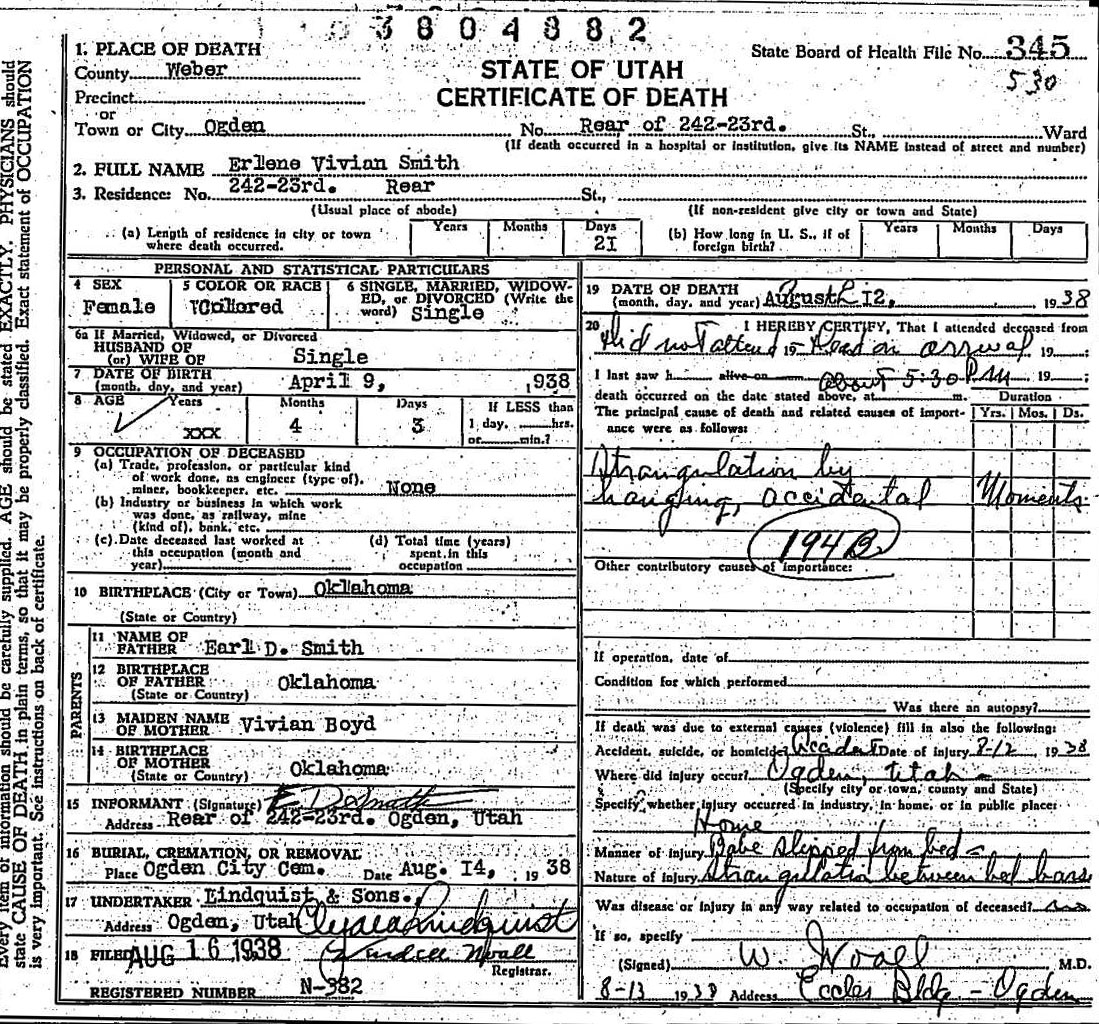 3804882
1. PLACE OF DEATH
County Weber
Precinct
or
Town or City Ogden
STATE OF UTAH
CERTIFICATE OF DEATH
State Board of Health File No. 345
530
No. Rear of 242-23rd. St., Ward
(If death occurred in a hospital or institution, give its NAME instead of street and number)
2. FULL NAME Erlene Vivian Smith
3. Residence: No. 242-23rd. Rear St.,
(Usual place of abode) (If non-resident give city or town and State)
(a) Length of residence in city or town where death occurred. Years Months Days 21
(b) How long in U. S., if of foreign birth? Years Months Days
PERSONAL AND STATISTICAL PARTICULARS
4 SEX Female
5 COLOR OR RACE Colored
6 SINGLE, MARRIED, WIDOWED, or DIVORCED (Write the word) Single
6a If Married, Widowed, or Divorced
HUSBAND OF
(or) WIFE OF Single
7 DATE OF BIRTH
(month, day, and year) April 9, 1938
8 AGE Years xxx Months 4 Days 3 If LESS than 1 day, hrs. or min.?
9 OCCUPATION OF DECEASED
(a) Trade, profession, or particular kind of work done, as engineer (type of), miner, bookkeeper, etc. None
(b) Industry or business in which work was done, as railway, mine (kind of), bank, etc.
(c) Date deceased last worked at this occupation (month and year)
(d) Total time (years) spent in this occupation
10 BIRTHPLACE (City or Town) Oklahoma
(State or Country)
PARENTS
11 NAME OF FATHER Earl D. Smith
12 BIRTHPLACE OF FATHER (State or Country) Oklahoma
13 MAIDEN NAME OF MOTHER Vivian Boyd
14 BIRTHPLACE OF MOTHER (State or Country) Oklahoma
15 INFORMANT (Signature) E D Smith
Address Rear of 242-23rd. Ogden, Utah
16 BURIAL, CREMATION, OR REMOVAL
Place Ogden City Cem. Date Aug. I4, 1938
17 UNDERTAKER Lindquist & Sons.
Address Ogden, Utah Clyde Lindquist
18 FILED AUG 16 1938
Registrar.
REGISTERED NUMBER N-382
19 DATE OF DEATH
(month, day, and year) August I2, 1938
20 I HEREBY CERTIFY, That I attended deceased from
Did not attend 19 Dead on arrival 19 ;
I last saw h alive on about 5:30 P.M 19 ;
death occurred on the date stated above, at m.
The principal cause of death and related causes of importance were as follows:
Duration
Yrs. Mos. Ds.
Strangulation by
hanging, accidental Moments
194B
Other contributory causes of importance:
If operation, date of
Condition for which performed
Was there an autopsy?
If death was due to external causes (violence) fill in also the following:
Accident, suicide, or homicide Accident Date of injury 8-12 1938
Where did injury occur? Ogden, Utah -
(Specify city or town, county and State)
Specify whether injury occurred in industry, in home, or in public place:
Home
Manner of injury Babe slipped from bed -
Nature of injury Strangulation between bed bars
Was disease or injury in any way related to occupation of deceased? no
If so, specify
(Signed) W. Noall M.D.
8-13 1938 Address Eccles Bldg - Ogden
Every item of information should be carefully supplied. AGE should be stated EXACTLY. PHYSICIANS should
state CAUSE OF DEATH in plain terms, so that it may be properly classified. Exact statement of OCCUPATION
is very important. See instructions on back of certificate.